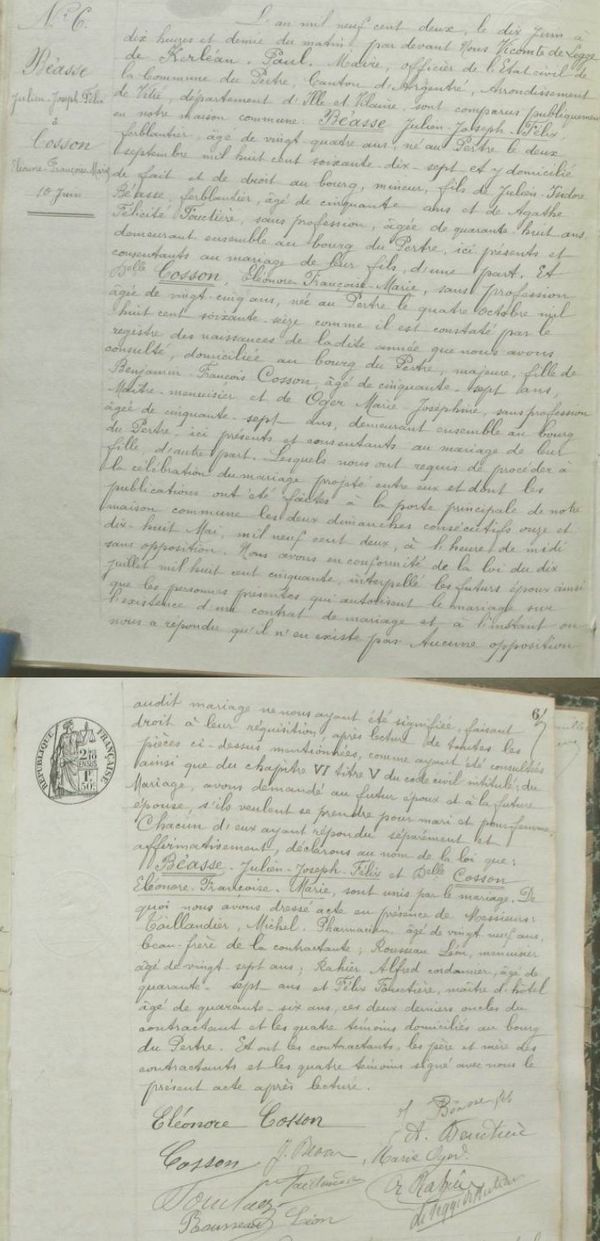 N° 6.
Béasse
Julien-Joseph-Félix
à
Cosson
Eléonore-Françoise-Marie
10 Juin
L'an mil neuf cent deux, le dix Juin à
dix heures et demie du matin, par devant Nous Vicomte de Legge
de Kerléan, Paul, Maire, officier de l'Etat civil de
la Commune du Pertre, Canton d'Argentré, Arrondissement
de Vitré, département d'Ille et Vilaine, sont comparus publiquement
en notre maison commune. Béasse Julien-Joseph-Félix
ferblantier, âgé de vingt quatre ans, né au Pertre le deux
septembre mil huit cent soixante-dix-sept et y domicilié
de fait et de droit au bourg, mineur, fils de Julien-Isidore
Béasse, ferblantier, âgé de cinquante ans et de Agathe
Félicité Fouctière, sans profession, âgée de quarante huit ans
demeurant ensemble au bourg du Pertre, ici présents et
consentants au mariage de leur fils, d'une part. Et
Delle Cosson, Eléonore Françoise-Marie, sans profession
âgée de vingt-cinq ans, née au Pertre le quatre octobre mil
huit cent soixante-seize comme il est constaté par le
registre des naissances de ladite année que nous avons
consulté, domiciliée au bourg du Pertre, majeure, fille de
Benjamin-François Cosson, âgé de cinquante-sept ans,
Maître-menuisier et de Oger Marie Joséphine, sans profession
âgée de cinquante-sept ans, demeurant ensemble au bourg
du Pertre, ici présents et consentants au mariage de leur
fille, d'autre part. Lesquels nous ont requis de procéder à
la célébration du mariage projeté entre eux et dont les
publications ont été faites à la porte principale de notre
maison commune les deux dimanches consécutifs onze et
dix-huit Mai, mil neuf cent deux, à l'heure de midi
sans opposition. Nous avons en conformité de la loi du dix
juillet mil huit cent cinquante, interpellé les futurs époux ainsi
que les personnes présentes qui autorisent le mariage sur
l'existence d'un contrat de mariage et à l'instant on
nous a répondu qu'il n'en existe pas Aucune opposition
6
audit mariage ne nous ayant été signifiée, faisant
droit à leur réquisition, après lecture de toutes les
pièces ci-dessus mentionnées, comme ayant été consultés
ainsi que du chapitre VI titre V du code civil intitulé; du
Mariage, avons demandé au futur époux et à la future
épouse, s'ils veulent se prendre pour mari et pour femme,
Chacun d'eux ayant répondu séparément et
affirmativement, déclarons au nom de la loi que:
Béasse Julien-Joseph-Félix et Delle Cosson
Eléonore-Françoise-Marie, sont unis par le mariage. De
quoi nous avons dressé acte en présence de Messieurs:
Taillandier, Michel, Pharmacien âgé de vingt neuf ans,
beau-frère de la contractante; Rousseau Léon, menuisier
âgé de vingt-sept ans; Rahier Alfred cordonnier, âgé de
quarante-sept ans et Félix Fouctière, maître d'hôtel
âgé de quarante-six ans, ces deux derniers oncles du
contractant et les quatre témoins domiciliés au bourg
du Pertre. Et ont les contractants, les père et mère des
contractants et les quatre témoins signé avec nous le
présent acte après lecture.
REPUBLIQUE FRANÇAISE
Eléonore Cosson
J Béasse fils
Cosson
Marie Oger
A Rahier
Rousseau Léon